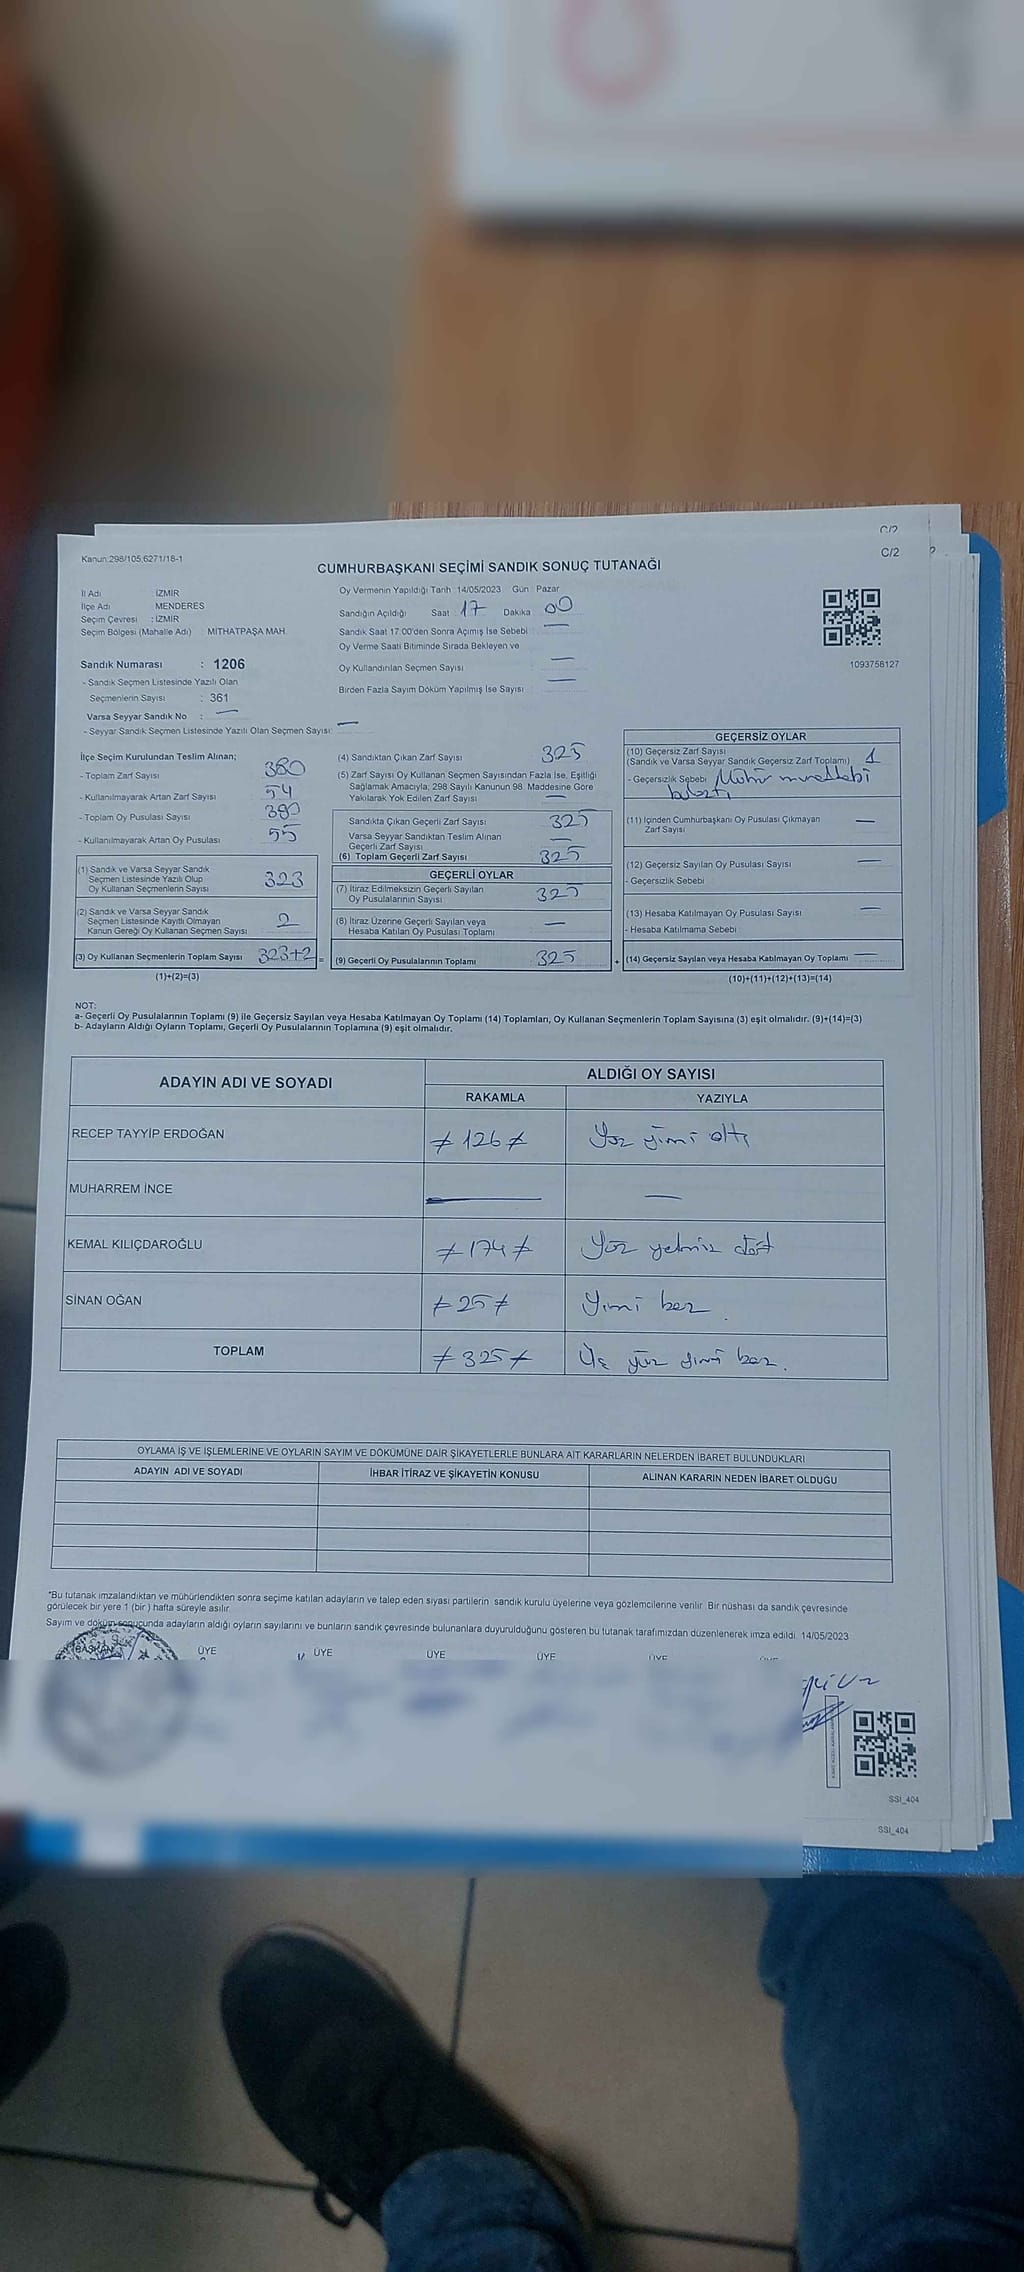 C/2
Kanun:298/105,6271/18-1
C/2
CUMHURBAŞKANI SEÇİMİ SANDIK SONUÇ TUTANAĞI
İl Adı : İZMİR
İlçe Adı : MENDERES
Seçim Çevresi : İZMİR
Seçim Bölgesi (Mahalle Adı) : MİTHATPAŞA MAH.
Sandık Numarası : 1206
- Sandık Seçmen Listesinde Yazılı Olan
Seçmenlerin Sayısı : 361
Varsa Seyyar Sandık No : —
- Seyyar Sandık Seçmen Listesinde Yazılı Olan Seçmen Sayısı: —
Oy Vermenin Yapıldığı Tarih : 14/05/2023 Gün : Pazar
Sandığın Açıldığı Saat 17 Dakika 00
Sandık Saat 17:00'den Sonra Açılmış İse Sebebi : —
Oy Verme Saati Bitiminde Sırada Bekleyen ve
Oy Kullandırılan Seçmen Sayısı : —
Birden Fazla Sayım Döküm Yapılmış İse Sayısı : —
1093758127
İlçe Seçim Kurulundan Teslim Alınan;
- Toplam Zarf Sayısı 380
- Kullanılmayarak Artan Zarf Sayısı 54
- Toplam Oy Pusulası Sayısı 380
- Kullanılmayarak Artan Oy Pusulası 55
(1) Sandık ve Varsa Seyyar Sandık
Seçmen Listesinde Yazılı Olup
Oy Kullanan Seçmenlerin Sayısı 323
(2) Sandık ve Varsa Seyyar Sandık
Seçmen Listesinde Kayıtlı Olmayan
Kanun Gereği Oy Kullanan Seçmen Sayısı 2
(3) Oy Kullanan Seçmenlerin Toplam Sayısı 323+2 =
(1)+(2)=(3)
(4) Sandıktan Çıkan Zarf Sayısı 325
(5) Zarf Sayısı Oy Kullanan Seçmen Sayısından Fazla İse, Eşitliği
Sağlamak Amacıyla; 298 Sayılı Kanunun 98. Maddesine Göre
Yakılarak Yok Edilen Zarf Sayısı —
Sandıkta Çıkan Geçerli Zarf Sayısı 325
Varsa Seyyar Sandıktan Teslim Alınan
Geçerli Zarf Sayısı —
(6) Toplam Geçerli Zarf Sayısı 325
GEÇERLİ OYLAR
(7) İtiraz Edilmeksizin Geçerli Sayılan
Oy Pusulalarının Sayısı 325
(8) İtiraz Üzerine Geçerli Sayılan veya
Hesaba Katılan Oy Pusulası Toplamı —
(9) Geçerli Oy Pusulalarının Toplamı 325 +
GEÇERSİZ OYLAR
(10) Geçersiz Zarf Sayısı
(Sandık ve Varsa Seyyar Sandık Geçersiz Zarf Toplamı) 1
- Geçersizlik Sebebi Mühür
(11) İçinden Cumhurbaşkanı Oy Pusulası Çıkmayan
Zarf Sayısı —
(12) Geçersiz Sayılan Oy Pusulası Sayısı —
- Geçersizlik Sebebi
(13) Hesaba Katılmayan Oy Pusulası Sayısı —
- Hesaba Katılmama Sebebi
(14) Geçersiz Sayılan veya Hesaba Katılmayan Oy Toplamı —
(10)+(11)+(12)+(13)=(14)
NOT:
a- Geçerli Oy Pusulalarının Toplamı (9) ile Geçersiz Sayılan veya Hesaba Katılmayan Oy Toplamı (14) Toplamları, Oy Kullanan Seçmenlerin Toplam Sayısına (3) eşit olmalıdır. (9)+(14)=(3)
b- Adayların Aldığı Oyların Toplamı, Geçerli Oy Pusulalarının Toplamına (9) eşit olmalıdır.
ADAYIN ADI VE SOYADI
ALDIĞI OY SAYISI
RAKAMLA YAZIYLA
RECEP TAYYİP ERDOĞAN ≠ 126 ≠ Yüz yirmi altı
MUHARREM İNCE — —
KEMAL KILIÇDAROĞLU ≠ 174 ≠ Yüz yetmiş dört
SİNAN OĞAN ≠ 25 ≠ Yirmi beş
TOPLAM ≠ 325 ≠ Üç yüz yirmi beş.
OYLAMA İŞ VE İŞLEMLERİNE VE OYLARIN SAYIM VE DÖKÜMÜNE DAİR ŞİKAYETLERLE BUNLARA AİT KARARLARIN NELERDEN İBARET BULUNDUKLARI
ADAYIN ADI VE SOYADI İHBAR İTİRAZ VE ŞİKAYETİN KONUSU ALINAN KARARIN NEDEN İBARET OLDUĞU
*Bu tutanak imzalandıktan ve mühürlendikten sonra seçime katılan adayların ve talep eden siyasi partilerin sandık kurulu üyelerine veya gözlemcilerine verilir. Bir nüshası da sandık çevresinde
görülecek bir yere 1 (bir) hafta süreyle asılır.
Sayım ve döküm sonucunda adayların aldığı oyların sayılarını ve bunların sandık çevresinde bulunanlara duyurulduğunu gösteren bu tutanak tarafımızdan düzenlenerek imza edildi. 14/05/2023
BAŞKAN ÜYE ÜYE ÜYE ÜYE ÜYE
SSI_404
SSI_404